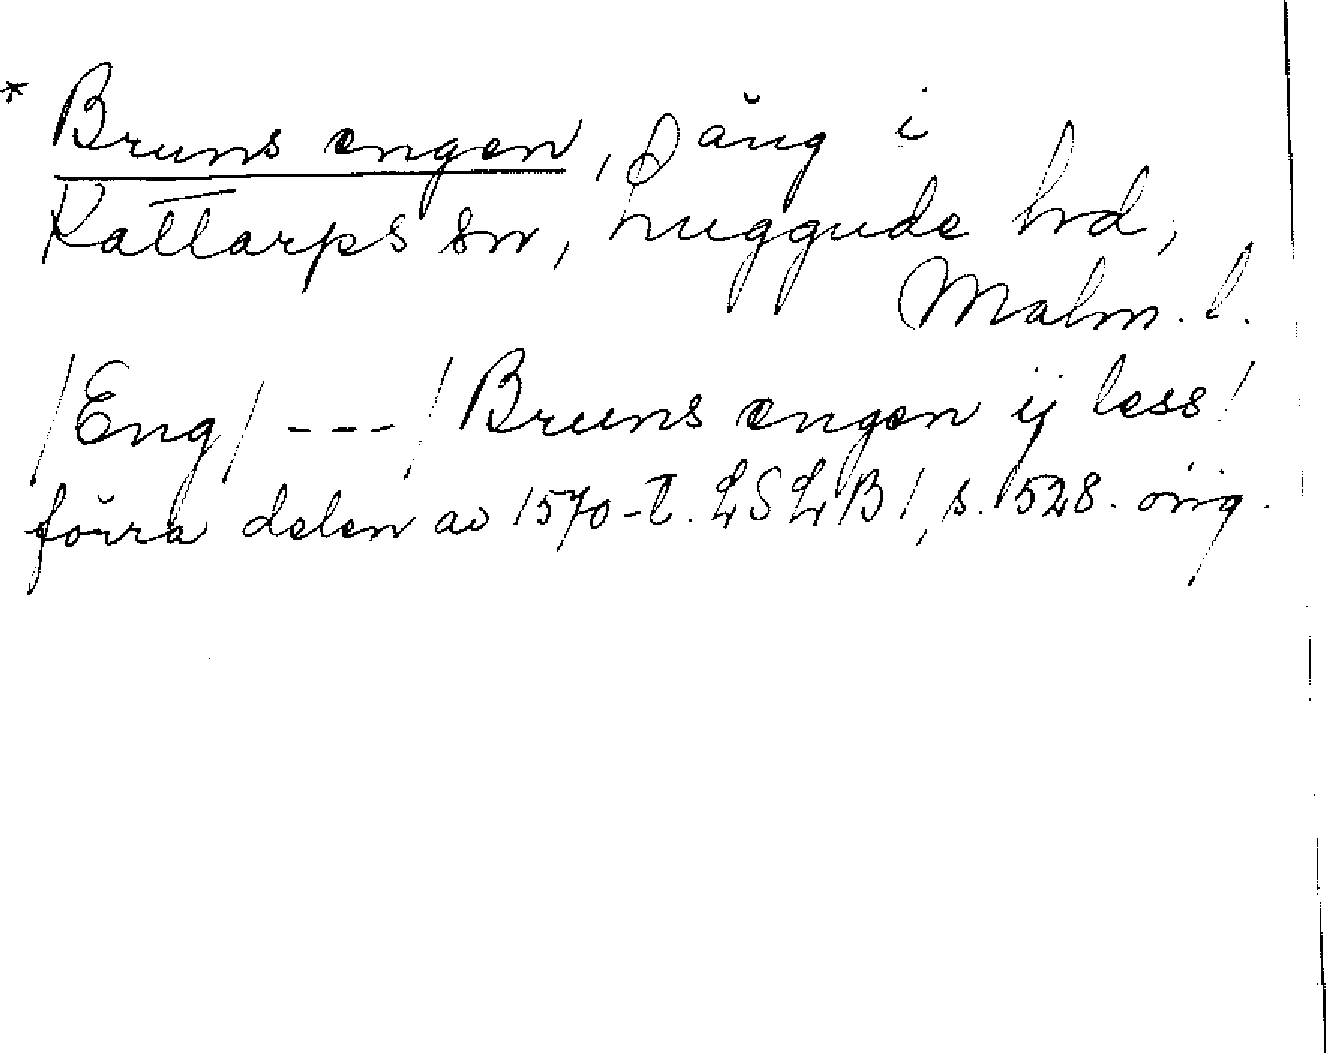 * Bruns engen, äng i
Kattarps sn, Luggude hd,
Malm. l.
/Eng/ --- / Bruns engen ij less /
förra delen av 1570-t. LSLB 1, s. 528. orig.